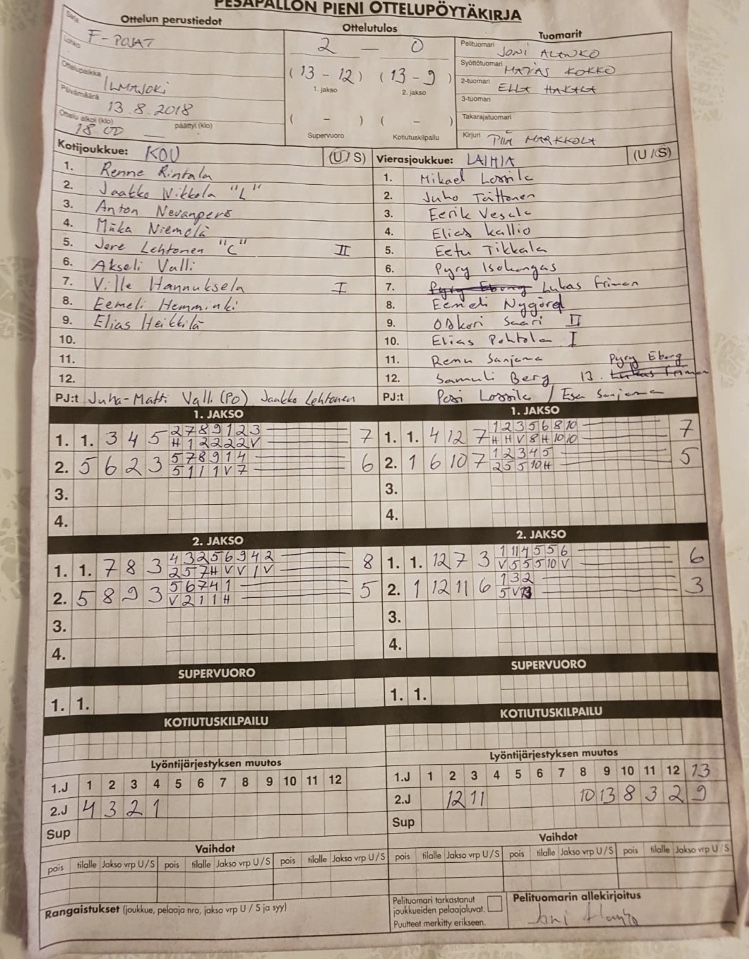 PESÄPALLON PIENI OTTELUPÖYTÄKIRJA
Ottelun perustiedot
Sarja
F-POJAT
Lohko
Ottelupaikka
ILMAJOKI
Päivämäärä
13.8.2018
Ottelu alkoi (klo)
18.00
päättyi (klo)
Ottelutulos
2 — 0
(13 - 12) (13 - 9)
1. jakso 2. jakso
( - ) ( - )
Supervuoro Kotiutuskilpailu
Tuomarit
Pelituomari JONI ALANKO
Syöttötuomari MATIAS KOKKO
2-tuomari ELLA HAKALA
3-tuomari
Takarajatuomari
Kirjuri PIIA MARKKOLA
Kotijoukkue: KOU (U / S)
1. Renne Rintala
2. Jaakko Nikkola "L"
3. Anton Nevanperä
4. Miika Niemelä
5. Jere Lehtonen "C" II
6. Akseli Valli
7. Ville Hannuksela I
8. Eemeli Hemminki
9. Elias Heikkilä
10.
11.
12.
PJ:t Juha-Matti Valli (PO) Jaakko Lehtonen
Vierasjoukkue: LAIHIA (U / S)
1. Mikael Lossila
2. Juho Taittonen
3. Eerik Vesala
4. Elias Kallio
5. Eetu Tikkala
6. Pyry Isokangas
7. Pyry Eborg Lukas Friman
8. Eemeli Nygård
9. Oskari Saari II
10. Elias Pohtola I
11. Remu Sanjama
12. Samuli Berg 13. Lukas Friman Pyry Eborg
PJ:t Pasi Lossila / Esa Sanjama
1. JAKSO
1. 1. 3 4 5 2 7 8 9 1 2 3 7
H 1 2 2 2 2 V
2. 5 6 2 3 5 7 8 9 1 4 6
5 1 1 1 V 7
3.
4.
1. JAKSO
1. 1. 4 12 7 1 2 3 5 6 8 10 7
H H V 8 H 10 10
2. 1 6 10 7 1 2 3 4 5 5
2 5 5 10 H
3.
4.
2. JAKSO
1. 1. 7 8 3 4 3 2 5 6 9 4 2 8
2 5 7 H V V 1 V
2. 5 8 9 3 5 6 7 4 1 5
V 2 1 1 H
3.
4.
2. JAKSO
1. 1. 12 7 3 1 11 4 5 5 6 6
V 5 5 5 10 V
2. 1 12 11 6 1 3 2 3
5 V
3.
4.
SUPERVUORO
1. 1.
SUPERVUORO
1. 1.
KOTIUTUSKILPAILU
KOTIUTUSKILPAILU
Lyöntijärjestyksen muutos
1.J 1 2 3 4 5 6 7 8 9 10 11 12
2.J 4 3 2 1
Sup
Lyöntijärjestyksen muutos
1.J 1 2 3 4 5 6 7 8 9 10 11 12 13
2.J 12 11 10 13 8 3 2 9
Sup
Vaihdot
pois tilalle Jakso vrp U / S pois tilalle Jakso vrp U / S pois tilalle Jakso vrp U / S
Vaihdot
pois tilalle Jakso vrp U / S pois tilalle Jakso vrp U / S pois tilalle Jakso vrp U / S
Rangaistukset (joukkue, pelaaja nro, jakso vrp U / S ja syy)
Pelituomari tarkastanut
joukkueiden pelaajaluvat.
Puutteet merkitty erikseen.
Pelituomarin allekirjoitus